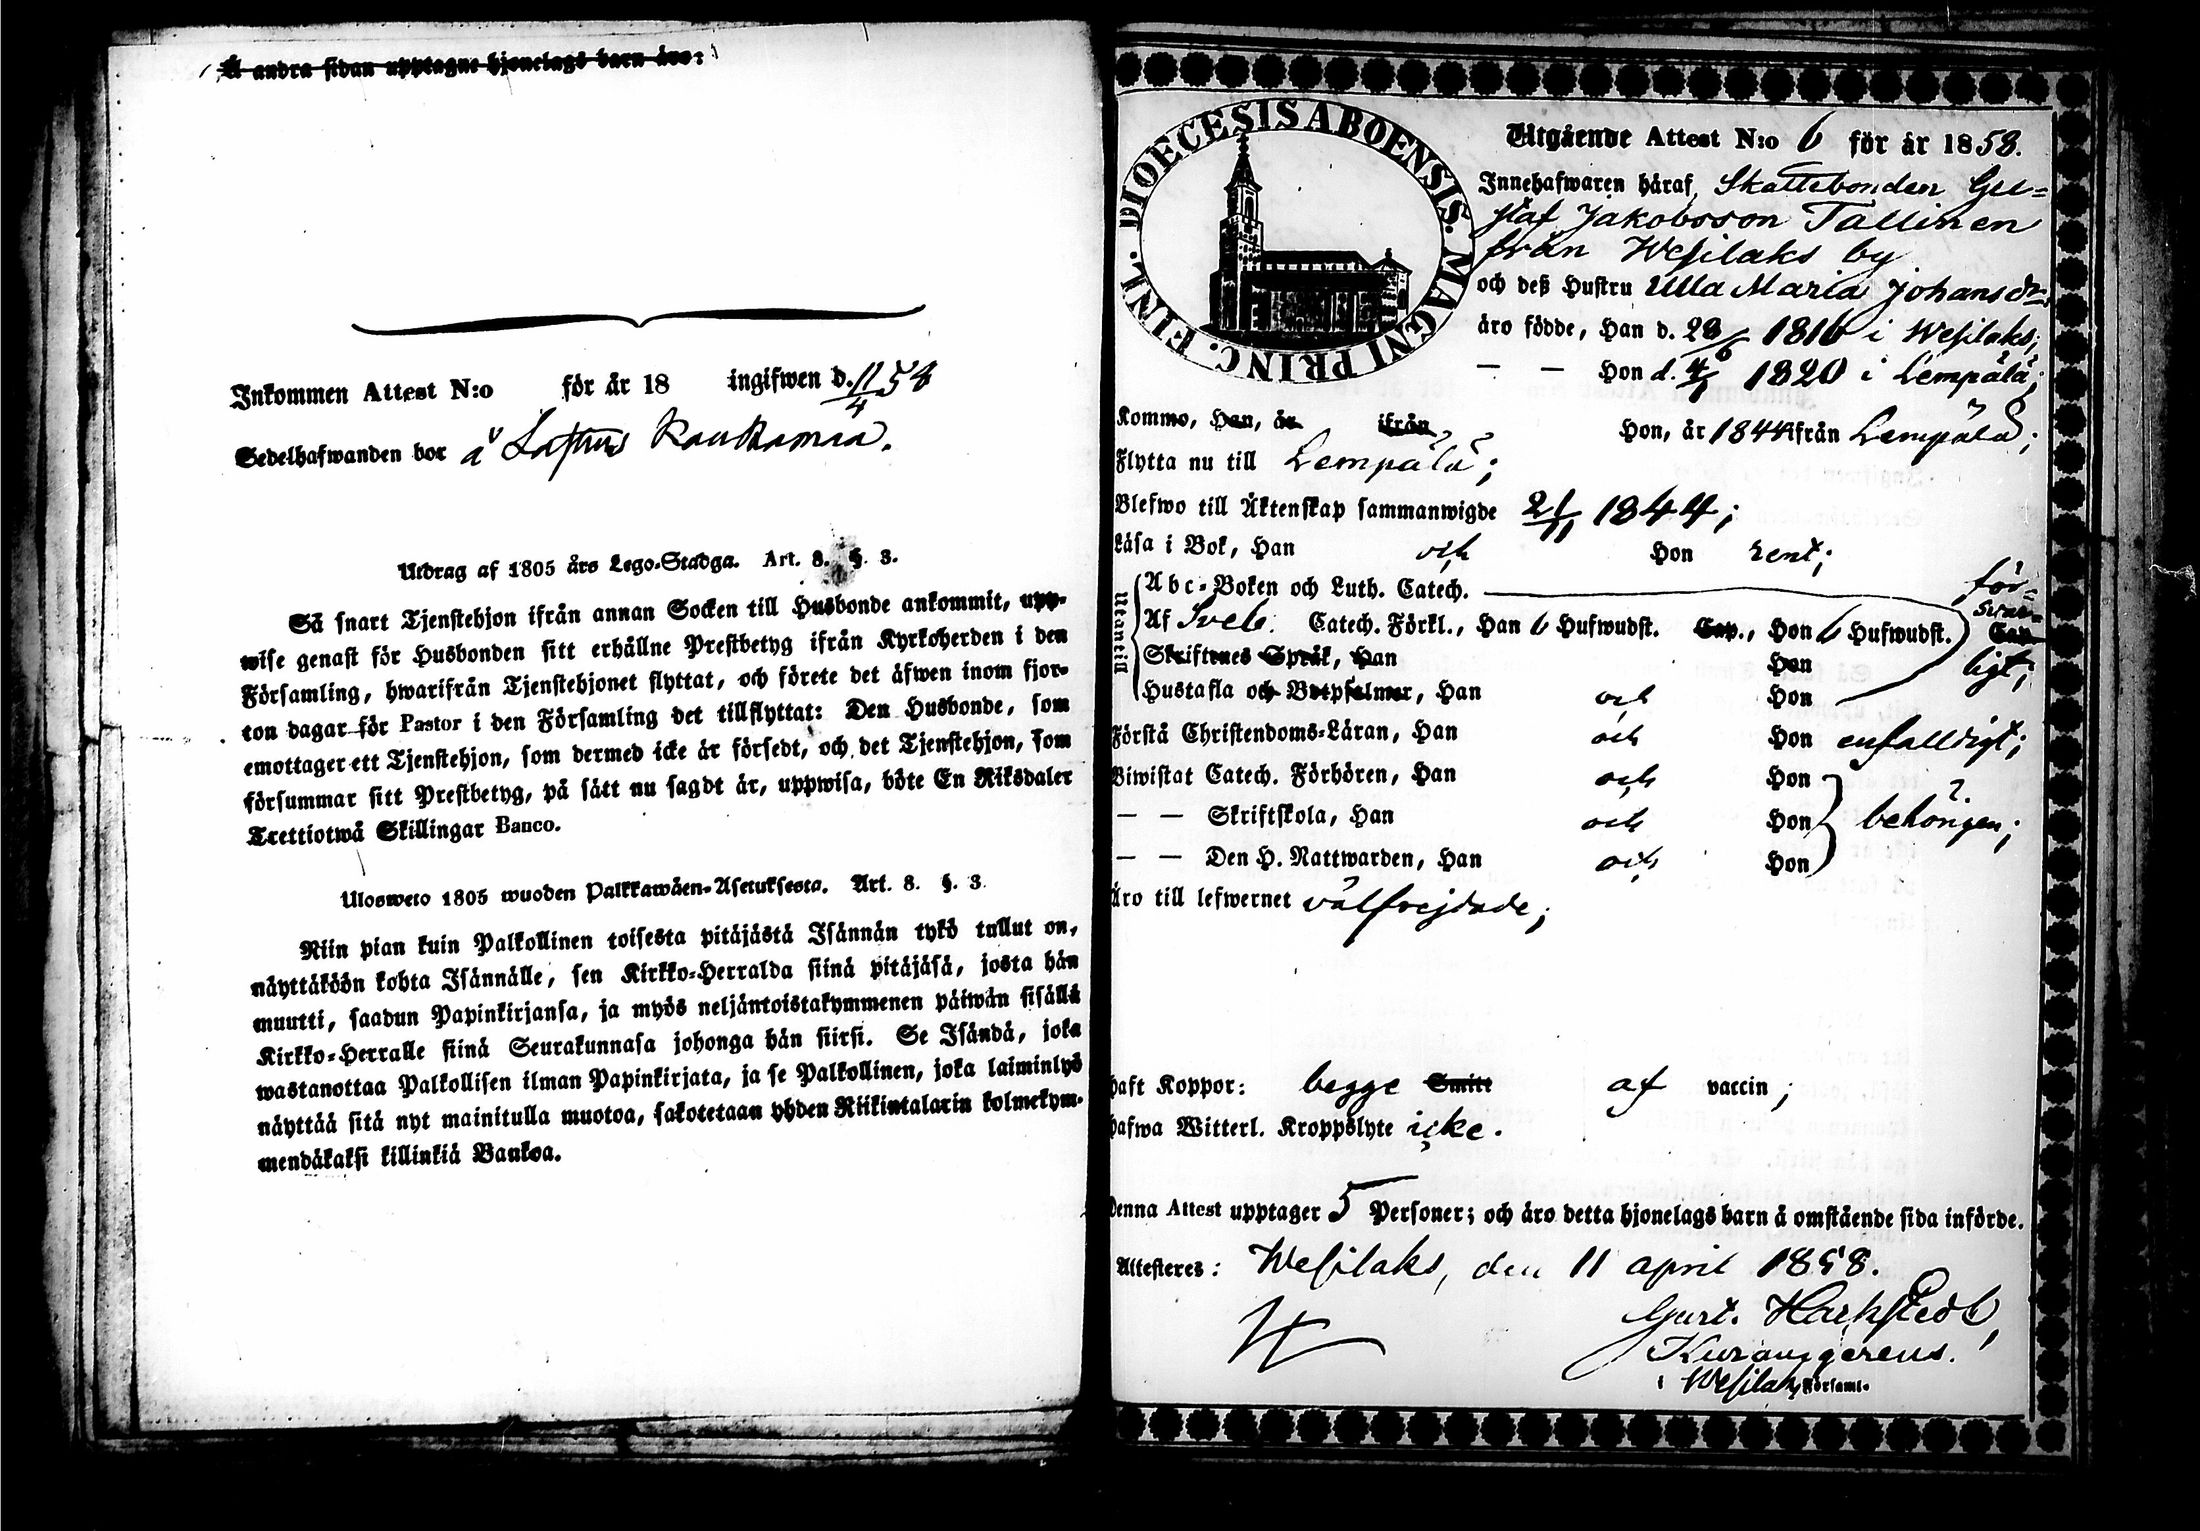 Å andra sidan upptagne hjonelags barn äro:
Inkommen Attest N:o för år 18 ingifwen d. 11/4 58
Sedelhafwanden bor å
Utdrag af 1805 års Lego-Stadga. Art. 8. §. 3.
Så snart Tjenstehjon ifrån annan Socken till Husbonde ankommit, upp-
wise genast för Husbonden sitt erhållne Prestbetyg ifrån Kyrkoherden i den
Församling, hwarifrån Tjenstehjonet flyttat, och förete det äfwen inom fjor-
ton dagar för Pastor i den Församling det tillflyttat: Den Husbonde, som
emottager ett Tjenstehjon, som dermed icke är försedt, och det Tjenstehjon, som
försummar sitt Prestbetyg, på sätt nu sagdt är, uppwisa, böte En Riksdaler
Trettiotwå Skillingar Banco.
Ulosweto 1805 wuoden Palkkawäen-Asetuksesta. Art. 8. §. 3.
Niin pian kuin Palkollinen toisesta pitäjästä Isännän tykö tullut on,
näyttäköön kohta Isännälle, sen Kirkko-Herralda siinä pitäjäsä, josta hän
muutti, saadun Papinkirjansa, ja myös neljäntoistakymmenen päiwän sisällä
Kirkko-Herralle siinä Seurakunnasa johonga hän siirsi. Se Isändä, joka
wastanottaa Palkollisen ilman Papinkirjata, ja se Palkollinen, joka laiminlyö
näyttää sitä nyt mainitulla muotoa, sakotetaan yhden Riikintalarin kolmekym-
mendäkaksi killinkiä Bankoa.
DIOECESIS ABOENSIS. MAGNI PRINC. FINL.
Utgående Attest N:o 6 för år 1858.
Innehafwaren häraf, Skattebonden Gu=
staf Jakobsson Tallinen
från Wesilaks by
och deß Hustru Ulla Maria Johansdr,
äro födde, Han d. 28/6 1816 i Wesilaks;
— — Hon d. 4/1 1820 i Lempälä;
Kommo, Han, år ifrån Hon, år 1844 ifrån Lempälä;
Flytta nu till Lempälä;
Blefwo till Äktenskap sammanwigde 21/11 1844;
Läsa i Bok, Han och Hon rent;
Utantill
Abc-Boken och Luth. Catech. för=
Af Sveb. Catech. Förkl., Han 6 Hufwudst. Cap., Hon 6 Hufwudst. Cap. svar=
Skriftenes Språk, Han Hon ligt;
Hustafla och Botpsalmer, Han och Hon
Förstå Christendoms-Läran, Han och Hon enfalldigt;
Biwistat Catech. Förhören, Han och Hon
— — Skriftskola, Han och Hon behörigen;
— — Den H. Nattwarden, Han och Hon
Äro till lefwernet välfrejdade;
haft Koppor: begge Smitt af vaccin;
hafwa Witterl. Kroppslyte icke.
Denna Attest upptager 5 Personer; och äro detta hjonelags barn å omstående sida införde.
Attesteres: Wesilaks, den 11 april 1858.
i Wesilaks Församl.